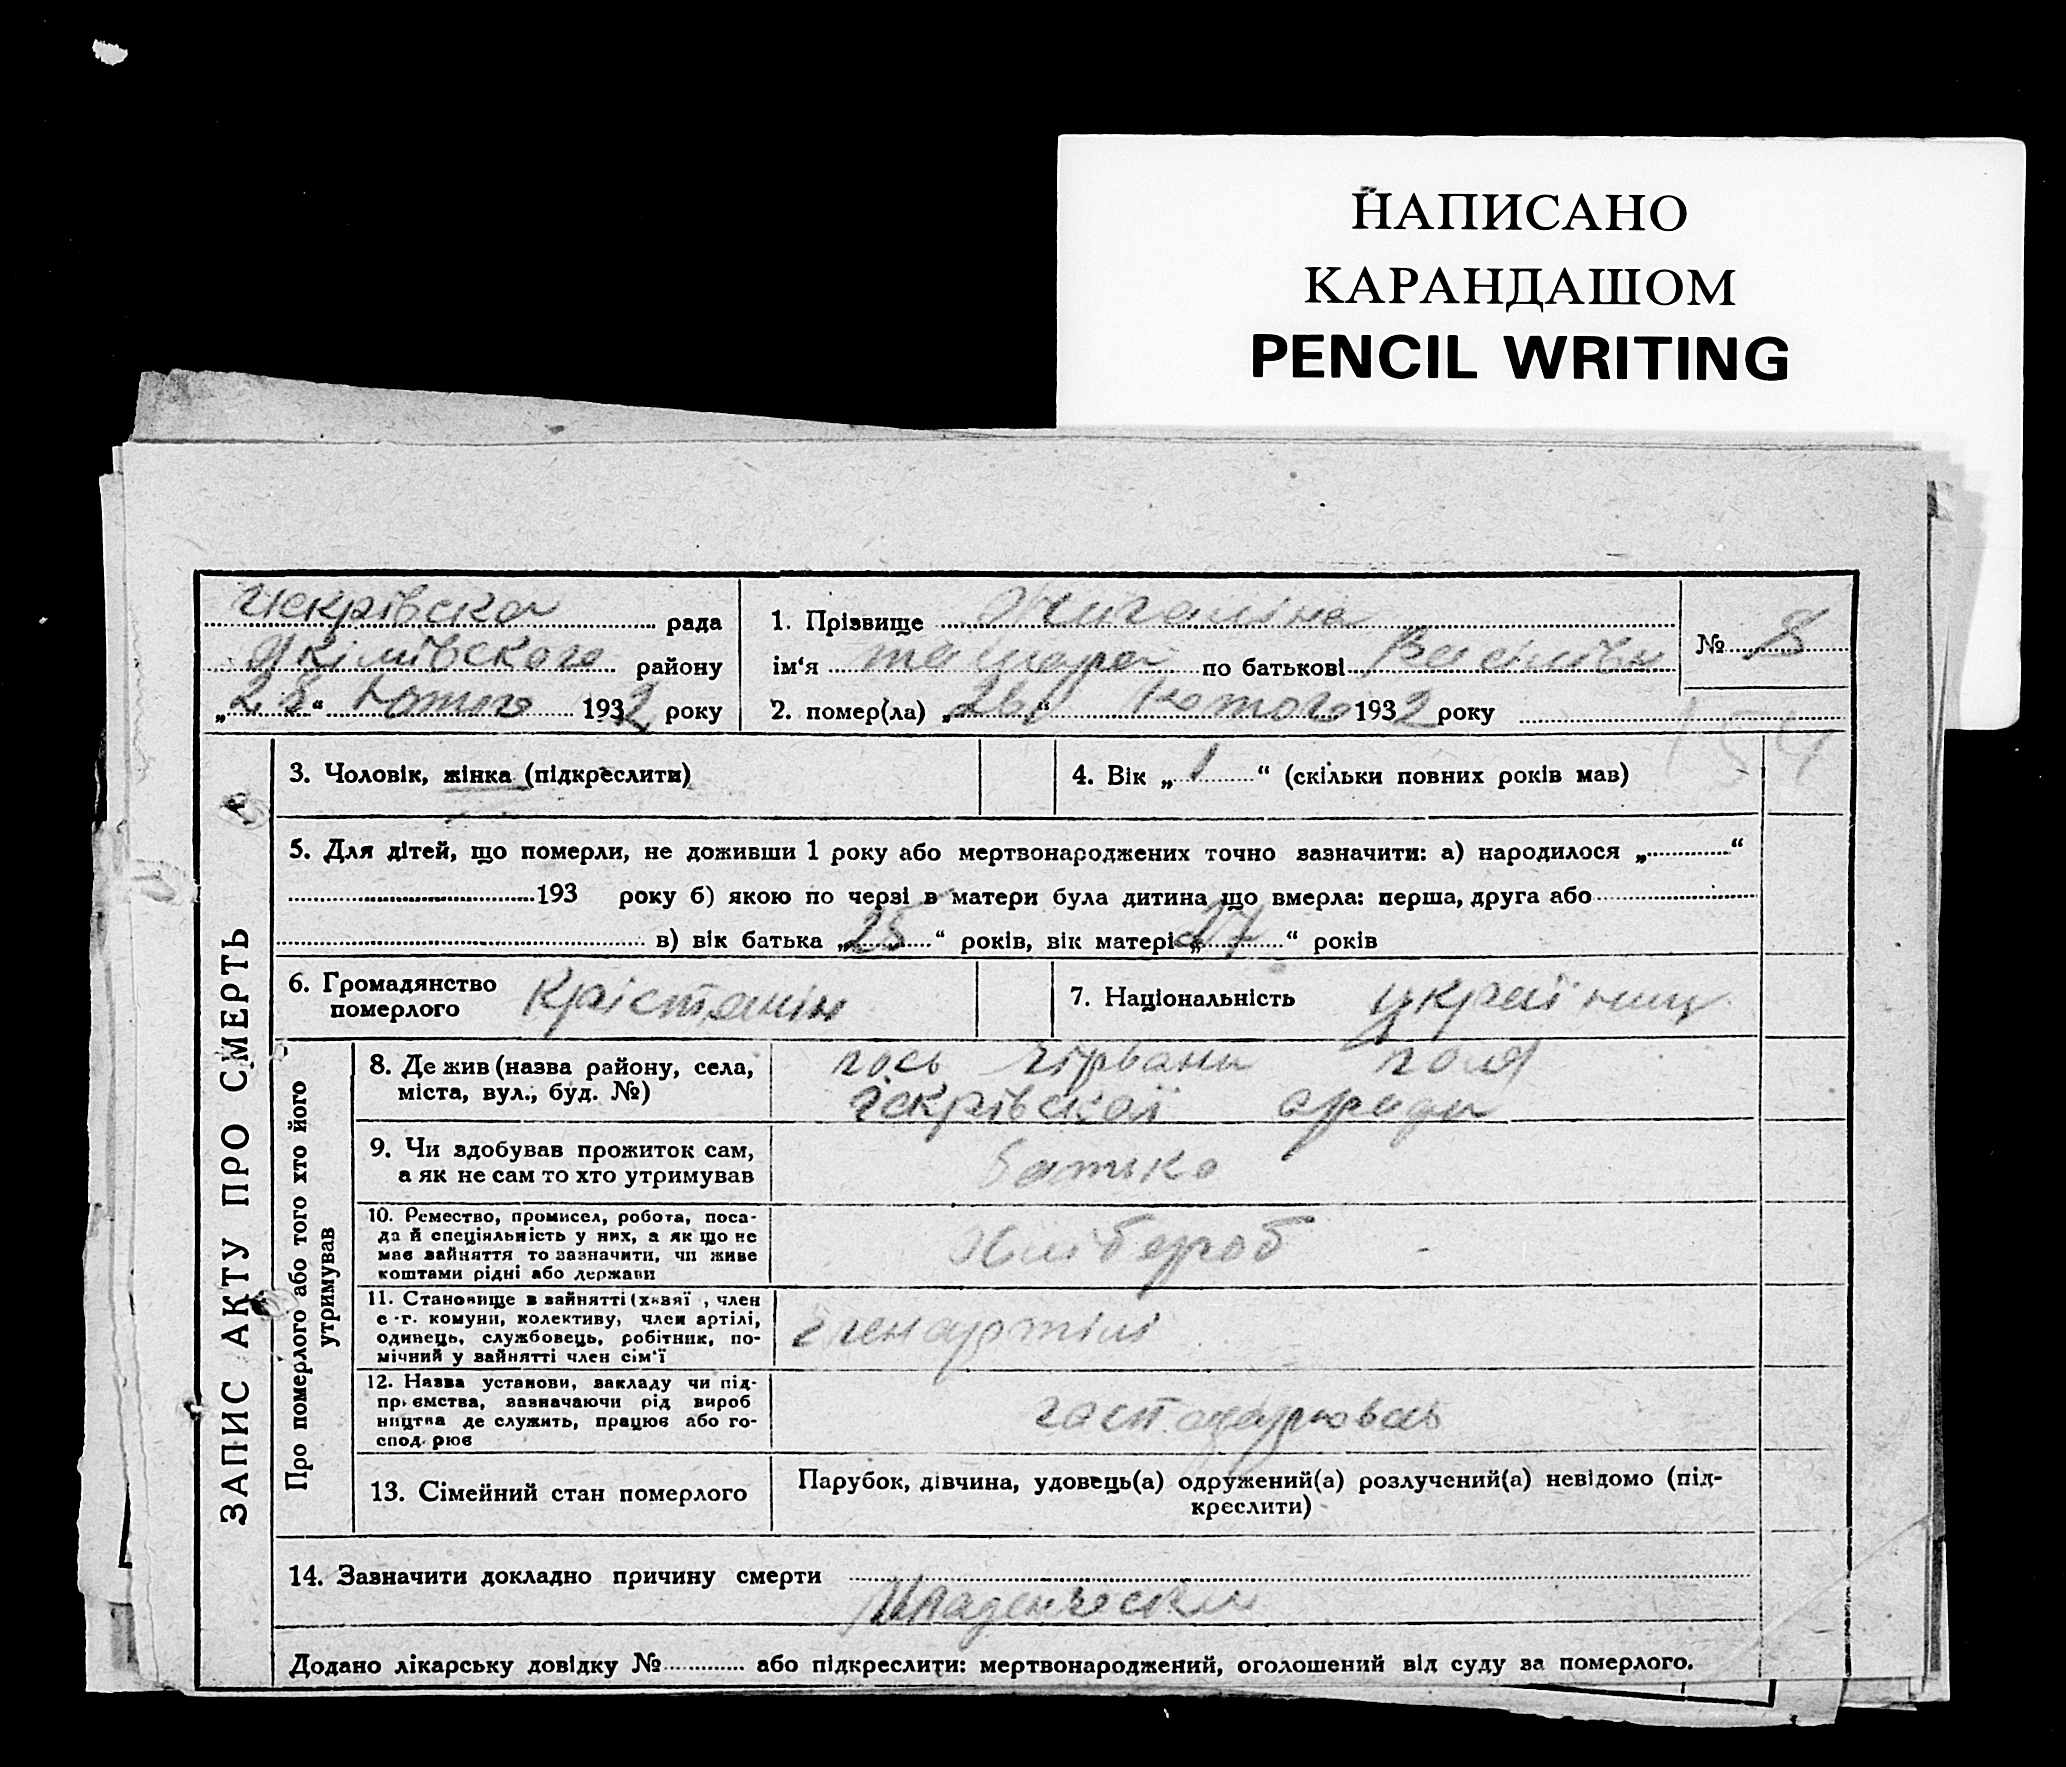 НАПИСАНО
КАРАНДАШОМ
PENCIL WRITING
Іскрівска рада
Якімівского району
„28“ Лютого 1932 року
1. Прізвище Жигаліна
ім‘я тамара по батькові Василівн
№ 8
2. помер(ла) „26“ Лютого 1932 року
154
ЗАПИС АКТУ ПРО СМЕРТЬ
3. Чоловік, жінка (підкреслити)
4. Вік „1“ (скільки повних років мав)
5. Для дітей, що померли, не доживши 1 року або мертвонароджених точно зазначити: а) народилося „ “
193 року б) якою по черзі в матери була дитина що вмерла: перша, друга або
в) вік батька „25“ років, вік матері „27“ років
6. Громадянство померлого Крістянін
7. Національність украіниц
Про померлого або того хто його утримував
8. Де жив (назва району, села, міста, вул., буд. №)
пось Чірвани поля
Іскрівскої сради
9. Чи здобував прожиток сам, а як не сам то хто утримував
батько
10. Ремество, промисел, робота, поса-
да й спеціяльність у них, а як що не
має зайняття то зазначити, чи живе
коштами рідні або держави
хлібороб
11. Становище в зайнятті (хазяї , член
с -г. комуни, колективу, член артілі,
одинець, службовець, робітник, по-
мічний у зайнятті член сім‘ї
Член артілі
12. Назва установи, закладу чи під-
пр ємства, зазначаючи рід вироб
ництва де служить, працює або го-
спод рює
13. Сімейний стан померлого
Парубок, дівчина, удовець(а) одружений(а) розлучений(а) невідомо (під-
креслити)
14. Зазначити докладно причину смерти
Младенческая
Додано лікарську довідку № або підкреслити: мертвонароджений, оголошений від суду за померлого.